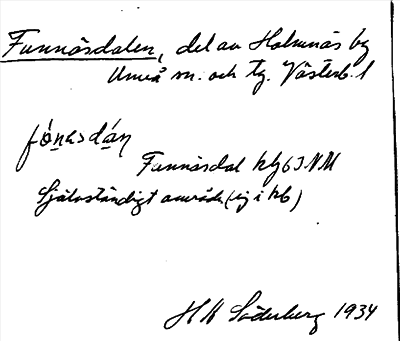 Funnäsdalen, del av Holmnäs by
Umeå sn. och tg. Västerb. l
fónαsdán
Funnäsdal hly 63 NM
Självständigt område (ej i hb)
H H Söderberg 1934